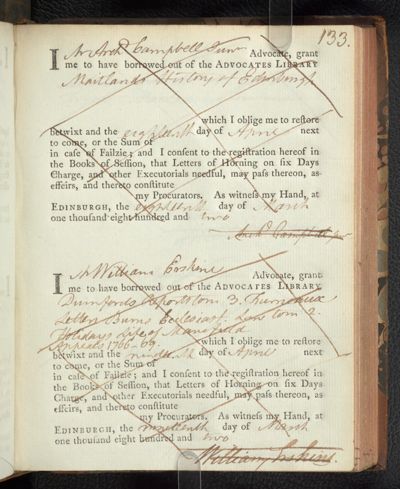 133.
I Mr Archd Campbell Junr Advocate, grant
me to have borrowed out of the ADVOCATES LIBRARY
Maitlands History of Edinburgh
which I oblige me to reſtore
betwixt and the eighteenth day of April next
to come, or the Sum of
in caſe of Failzie; and I conſent to the regiſtration hereof in
the Books of Seſſion, that Letters of Horning on ſix Days
Charge, and other Executorials needful, may paſs thereon, as-
effeirs, and thereto conſtitute
my Procurators. As witneſs my Hand, at
EDINBURGH, the eighteenth day of March
one thouſand eight hundred and two
Archd Campbell jr
I Mr William Erskine Advocate, grant
me to have borrowed out of the ADVOCATES LIBRARY
Durnfords Reports tom 3.
Letters Burns Ecclesiast. Law tom 2.
Holidays life of Mansfield
Appeals 1766-69. which I oblige me to reſtore
betwixt and the day of April next
to come, or the Sum of
in caſe of Failzie; and I conſent to the regiſtration hereof in
the Books of Seſſion, that Letters of Horning on ſix Days
Charge, and other Executorials needful, may paſs thereon, as
effeirs, and thereto conſtitute
my Procurators. As witneſs my Hand, at
EDINBURGH, the nineteenth day of March
one thouſand eight hundred and two
William Erskine.